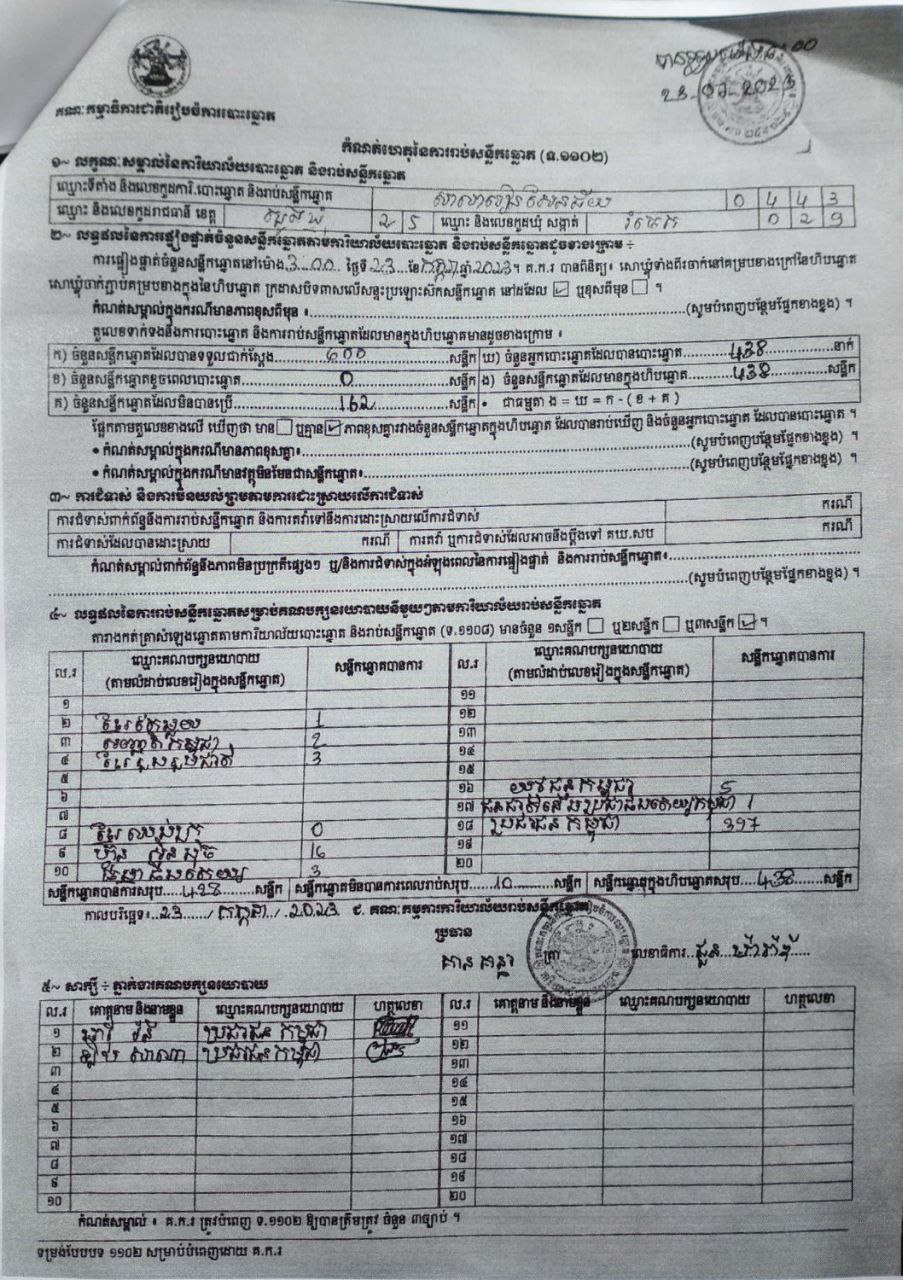 គណៈកម្មាធិការជាតិរៀបចំការបោះឆ្នោត
កំណត់ហេតុនៃការរាប់សន្លឹកឆ្នោត (ទ.១១០២)
១~ លក្ខណៈសម្គាល់នៃការិយាល័យបោះឆ្នោត និងរាប់សន្លឹកឆ្នោត
ឈ្មោះទីតាំង និងលេខកូដការិ.បោះឆ្នោត និងរាប់សន្លឹកឆ្នោត 0 4 4 3
ឈ្មោះ និងលេខកូដរាជធានី ខេត្ត 2 5 ឈ្មោះ និងលេខកូដឃុំ សង្កាត់ 0 2 9
២~ លទ្ធផលនៃការផ្ទៀងផ្ទាត់ចំនួនសន្លឹកឆ្នោតតាមការិយាល័យបោះឆ្នោត និងរាប់សន្លឹកឆ្នោតដូចខាងក្រោម ÷
ការផ្ទៀងផ្ទាត់ចំនួនសន្លឹកឆ្នោតនៅម៉ោង 3:00 ថ្ងៃទី 23 ខែ កក្កដា ឆ្នាំ 2023។ គ.ក.រ បានពិនិត្យ៖ សោឃ្លុំទាំងពីរចាក់នៅគម្របខាងក្រៅនៃហិបឆ្នោត
សោឃ្លុំចាក់ភ្ជាប់គម្របខាងក្នុងនៃហិបឆ្នោត ក្រដាសបិទពាសលើសន្ទះប្រឡោះស៊កសន្លឹកឆ្នោត នៅដដែល ☑ ឬខុសពីមុន ☐ ។
កំណត់សម្គាល់ក្នុងករណីមានភាពខុសពីមុន ៖ (សូមបំពេញបន្ថែមផ្នែកខាងខ្នង) ។
តួលេខទាក់ទងនឹងការបោះឆ្នោត និងការរាប់សន្លឹកឆ្នោតដែលមានក្នុងហិបឆ្នោតមានដូចខាងក្រោម ៖
ក) ចំនួនសន្លឹកឆ្នោតដែលបានទទួលជាក់ស្តែង 600 សន្លឹក ឃ) ចំនួនអ្នកបោះឆ្នោតដែលបានបោះឆ្នោត 438 នាក់
ខ) ចំនួនសន្លឹកឆ្នោតខូចពេលបោះឆ្នោត 0 សន្លឹក ង) ចំនួនសន្លឹកឆ្នោតដែលមានក្នុងហិបឆ្នោត 438 សន្លឹក
គ) ចំនួនសន្លឹកឆ្នោតដែលមិនបានប្រើ 162 សន្លឹក • ជាធម្មតា ង = ឃ = ក - (ខ + គ)
ផ្អែកតាមតួលេខខាងលើ ឃើញថា មាន ☐ ឬគ្មាន ☑ ភាពខុសគ្នារវាងចំនួនសន្លឹកឆ្នោតក្នុងហិបឆ្នោត ដែលបានរាប់ឃើញ និងចំនួនអ្នកបោះឆ្នោត ដែលបានបោះឆ្នោត ។
• កំណត់សម្គាល់ក្នុងករណីមានភាពខុសគ្នា៖ (សូមបំពេញបន្ថែមផ្នែកខាងខ្នង) ។
• កំណត់សម្គាល់ក្នុងករណីមានវត្ថុមិនមែនជាសន្លឹកឆ្នោត៖ (សូមបំពេញបន្ថែមផ្នែកខាងខ្នង) ។
៣~ ការជំទាស់ និងការមិនយល់ព្រមតាមការដោះស្រាយលើការជំទាស់
ការជំទាស់ពាក់ព័ន្ធនឹងការរាប់សន្លឹកឆ្នោត និងការតវ៉ាទៅនឹងការដោះស្រាយលើការជំទាស់ ករណី
ការជំទាស់ដែលបានដោះស្រាយ ករណី ការតវ៉ា ឬការជំទាស់ដែលអាចនឹងប្តឹងទៅ គឃ.សប ករណី
កំណត់សម្គាល់ពាក់ព័ន្ធនឹងភាពមិនប្រក្រតីផ្សេងៗ ឬ/និងការជំទាស់ក្នុងអំឡុងពេលនៃការផ្ទៀងផ្ទាត់ និងការរាប់សន្លឹកឆ្នោត៖
(សូមបំពេញបន្ថែមផ្នែកខាងខ្នង) ។
៤~ លទ្ធផលនៃការរាប់សន្លឹកឆ្នោតសម្រាប់គណបក្សនយោបាយនីមួយៗតាមការិយាល័យរាប់សន្លឹកឆ្នោត
តារាងកត់ត្រាសំឡេងឆ្នោតតាមការិយាល័យបោះឆ្នោត និងរាប់សន្លឹកឆ្នោត (ទ.១១០៨) មានចំនួន ១សន្លឹក ☐ ឬ២សន្លឹក ☐ ឬ៣សន្លឹក ☑ ។
ល.រ ឈ្មោះគណបក្សនយោបាយ សន្លឹកឆ្នោតបានការ ល.រ ឈ្មោះគណបក្សនយោបាយ សន្លឹកឆ្នោតបានការ
(តាមលំដាប់លេខរៀងក្នុងសន្លឹកឆ្នោត) (តាមលំដាប់លេខរៀងក្នុងសន្លឹកឆ្នោត)
១ ១១
២ ខ្មែរតែមួយ 1 ១២
៣ សញ្ជាតិកម្ពុជា 2 ១៣
៤ ខ្មែររួបរួមជាតិ 3 ១៤
៥ ១៥
៦ ១៦ យុវជនកម្ពុជា 5
៧ ១៧ ជនជាតិដើមប្រជាធិបតេយ្យកម្ពុជា 1
៨ ខ្មែរឈប់ក្រ 0 ១៨ ប្រជាជនកម្ពុជា 397
៩ ហ៊្វុនស៊ិនប៉ិច 16 ១៩
១០ 3 ២០
សន្លឹកឆ្នោតបានការសរុប 428 សន្លឹក សន្លឹកឆ្នោតមិនបានការពេលរាប់សរុប 10 សន្លឹក សន្លឹកឆ្នោតក្នុងហិបឆ្នោតសរុប 438 សន្លឹក
កាលបរិច្ឆេទ៖ 23 / កក្កដា / 2023 ជ. គណៈកម្មការការិយាល័យរាប់សន្លឹកឆ្នោត
ប្រធាន
ត្រា លេខាធិការ
៥~ សាក្សី ÷ ភ្នាក់ងារគណបក្សនយោបាយ
ល.រ គោត្តនាម និងនាមខ្លួន ឈ្មោះគណបក្សនយោបាយ ហត្ថលេខា ល.រ គោត្តនាម និងនាមខ្លួន ឈ្មោះគណបក្សនយោបាយ ហត្ថលេខា
១ ប្រជាជនកម្ពុជា ១១
២ ប្រជាជនកម្ពុជា ១២
៣ ១៣
៤ ១៤
៥ ១៥
៦ ១៦
៧ ១៧
៨ ១៨
៩ ១៩
១០ ២០
កំណត់សម្គាល់ ៖ គ.ក.រ ត្រូវបំពេញ ទ.១១០២ ឱ្យបានត្រឹមត្រូវ ចំនួន ៣ច្បាប់ ។
ទម្រង់បែបបទ ១១០២ សម្រាប់បំពេញដោយ គ.ក.រ